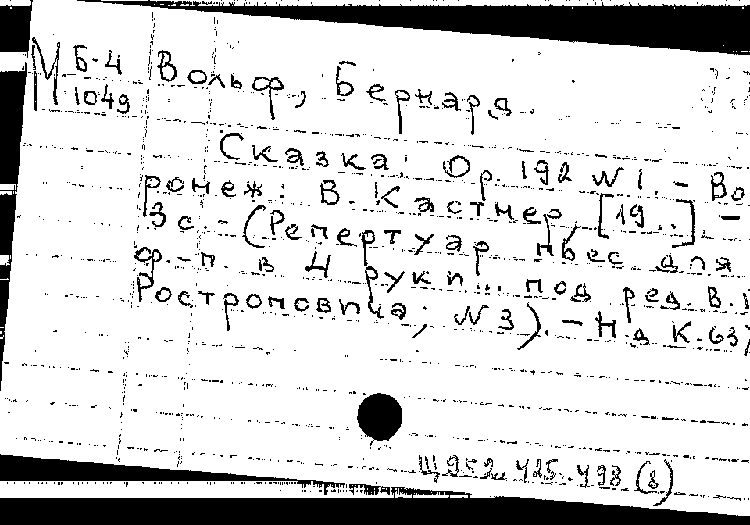 М Б-4 Вольф, Бернард.
1049
Сказка: Ор. 192 №1. - Во
ронеж: В. Кастнер, [19..]. -
3 с. - (Репертуар пьес для
ф.-п. в 4 руки... под ред. В.
Ростроповича; №3). - Н.д К.637
Щ952.425.493 (8)